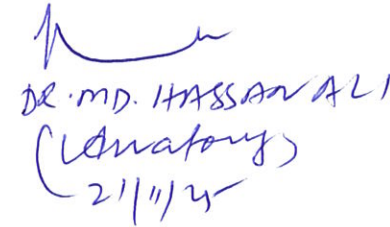 DR. MD. HASSAN ALI
(Anatomy)
21/11/25